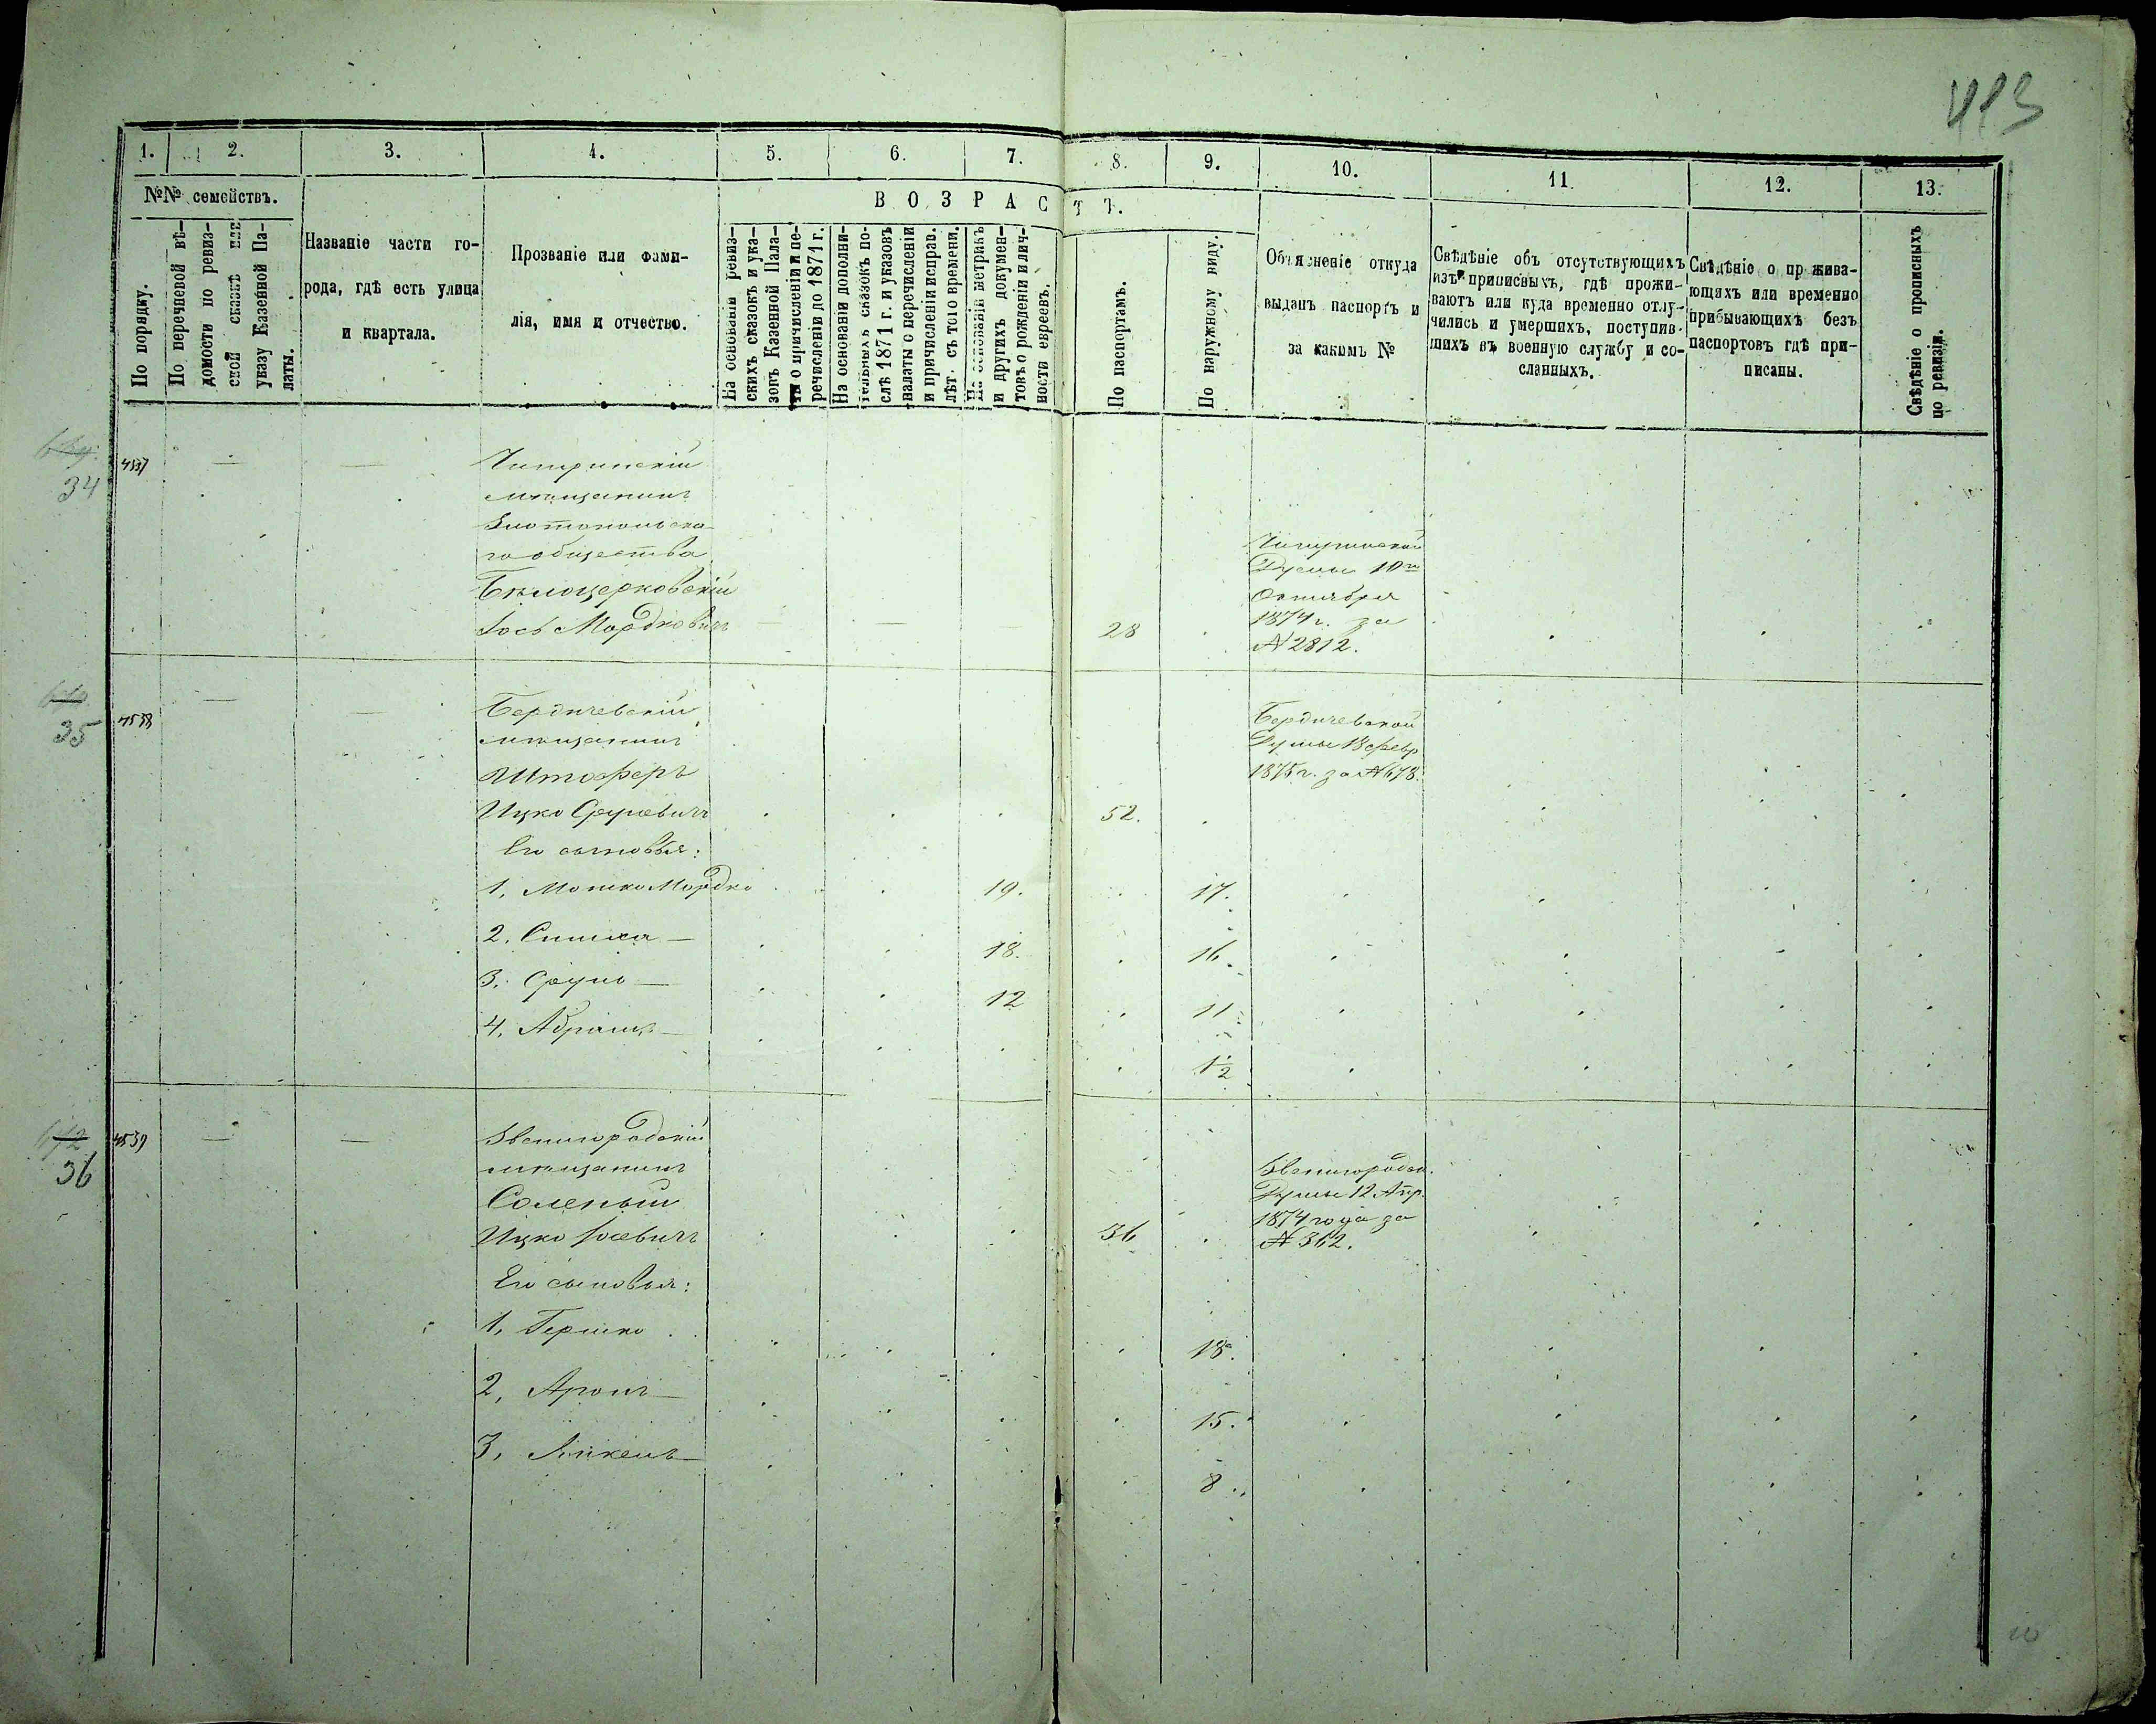 413
1. 2. 3. 4. 5. 6. 7. 8. 9. 10. 11. 12. 13.
№№ семействъ.
По порядку.
По перечневой вѣ-
домости по ревиз-
ской сказкѣ или
указу Казенной Па-
латы.
Названіе части го-
рода, гдѣ есть улица
и квартала.
Прозваніе или фами-
лія, имя и отчество.
ВОЗРАСТТ.
На основаніи ревиз-
скихъ сказокъ и ука-
зовъ Казенной Пала-
ты о причисленіи и пе-
речисленіи до 1871 г.
На основаніи дополни-
тельныхъ сказокъ по-
слѣ 1871 г. и указовъ
палаты о перечисленіи
и причисленіи исправ.
лѣт. съ того времени.
На основаніи метрикъ
и другихъ докумен-
товъ о рожденіи и лич-
ности евреевъ.
По паспортамъ.
По наружному виду.
Объясненіе откуда
выданъ паспортъ и
за какимъ №
Свѣдѣніе объ отсутствующихъ
изъ приписныхъ, гдѣ прожи-
ваютъ или куда временно отлу-
чились и умершихъ, поступив-
шихъ въ военную службу и со-
сланныхъ.
Свѣдѣніе о прожива-
ющихъ или временно
прибывающихъ безъ
паспортовъ гдѣ при-
писаны.
Свѣдѣніе о прописныхъ
по ревизіи.
34
4537
Чигиринскій
мѣщанинъ
Златопольска-
го общества
Бѣлоцерковскій
Іось Мордковичъ
28
Чигиринской
Думы 10го
Октября
1874 г. за
№ 2812.
35
4538
Бердичевскій
мѣщанинъ
Штоферъ
Ицко Сруевичъ
52.
Бердичевской
Думы 18 февр
1875 г. за № 678.
Его сыновья:
1, Мошко Мордко 19. 17.
2, Симха — 18. 16.
3, Сруль — 12 11.
4, Абрамъ — 1/2
36
4539
Звенигородскій
мѣщанинъ
Соленый
Ицко Іосевичъ
36
Звенигородск.
Думы 12 Апр.
1874 года за
№ 362.
Его сыновья:
1, Гершко 18.
2, Аронъ — 15.
3, Янкель — 8.